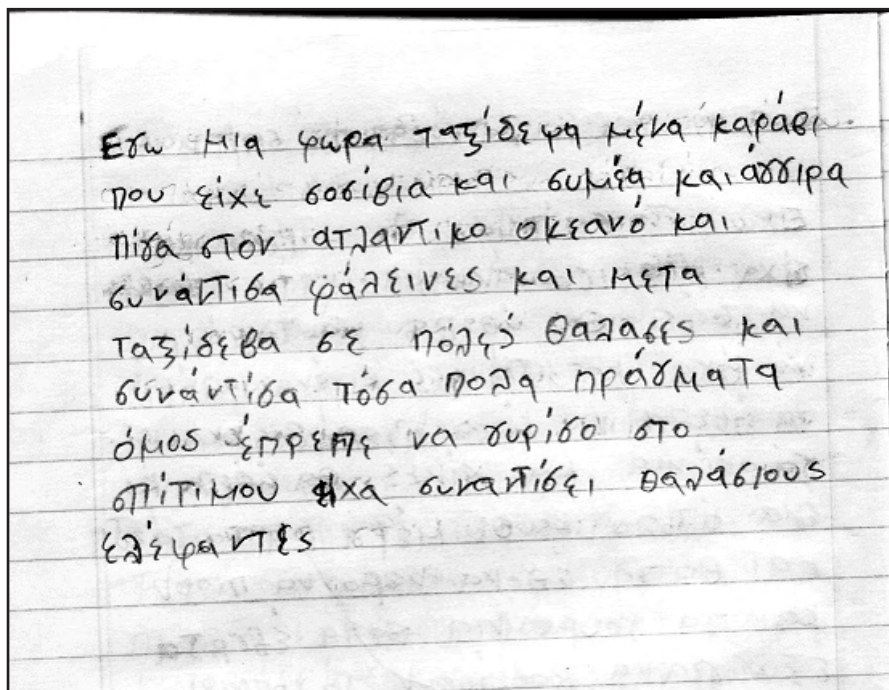 Εγω μια φωρα ταξίδεψα μένα καράβι
που είχε σοσίβια και συμέα και άγγιρα
πίγα στον ατλαντικο οκεανό και
συνάντισα φάλεινες και μετα
ταξίδεβα σε πόλές θαλασες και
συνάντίσα τόσα πολα πράγματα
όμος έπρεπε να γυρίσο στο
σπίτιμου είχα συναντίσει θαλάσιους
ελέφαντές